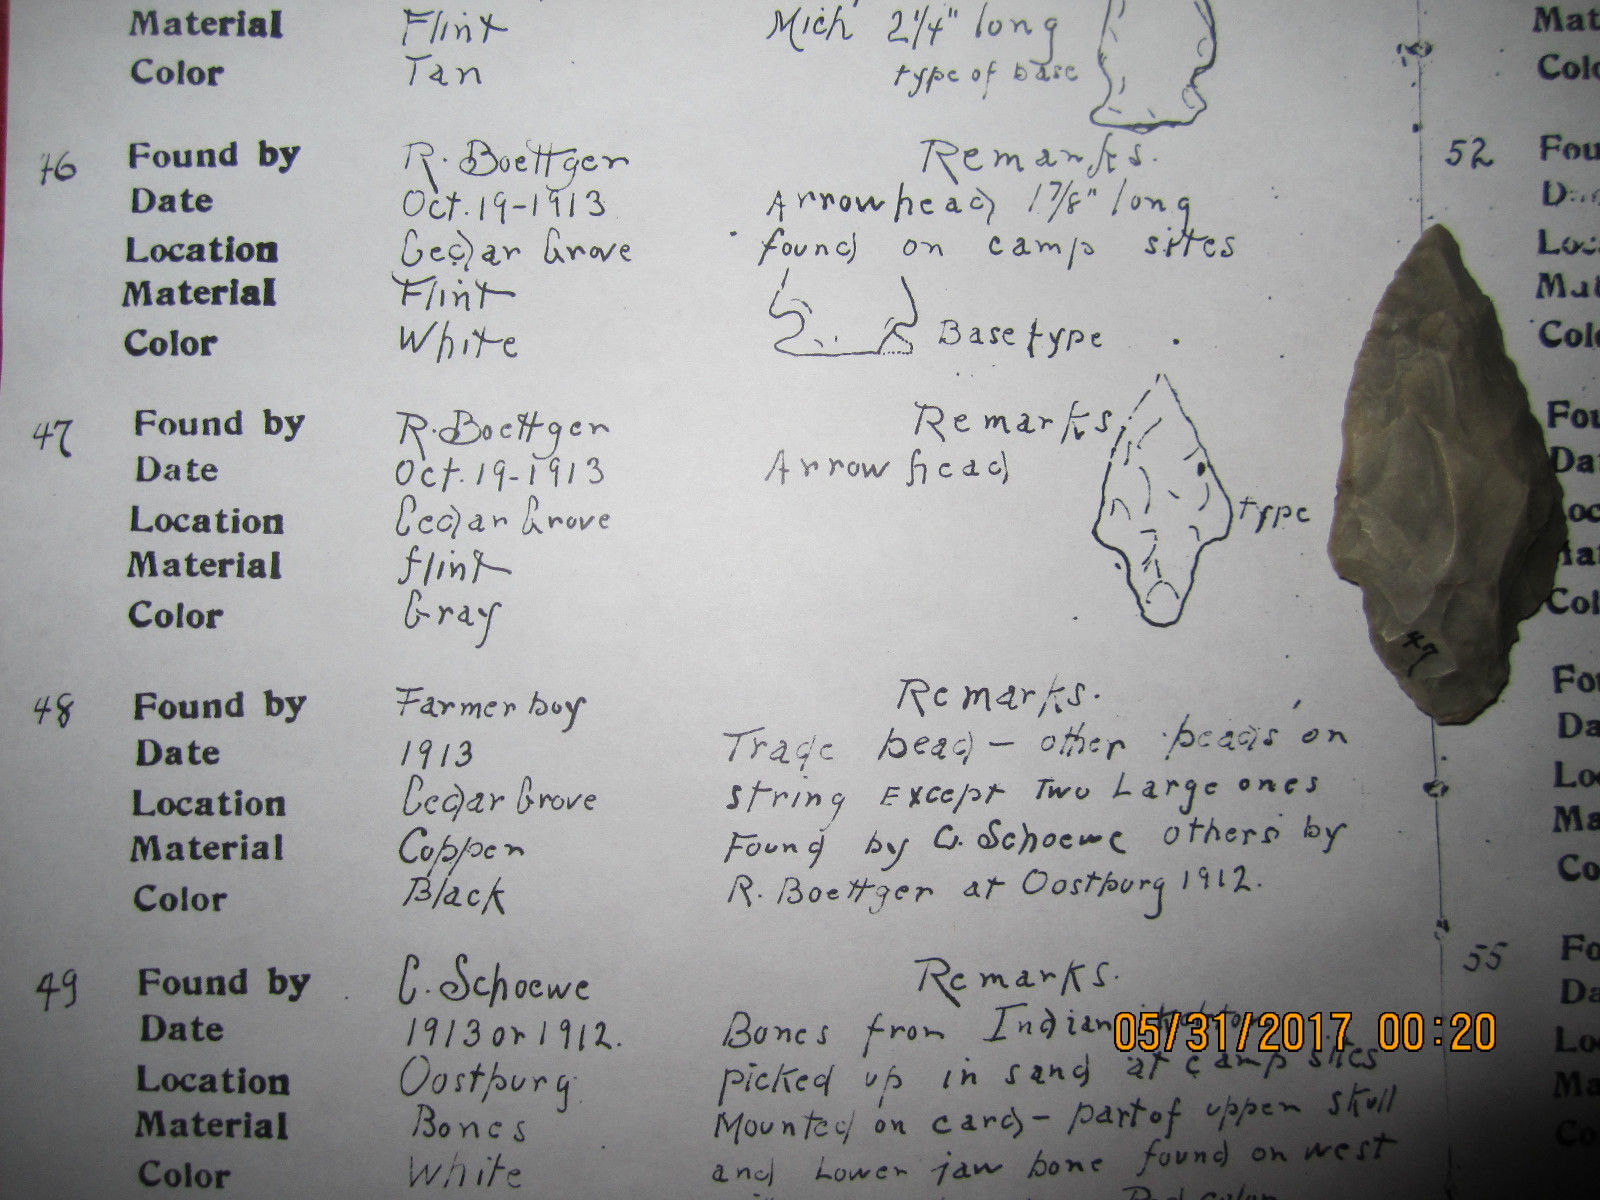 Material Flint Mich 2 1/4" long
Color Tan type of base
46 Found by R. Boettger Remarks.
Date Oct. 19-1913 Arrowhead 1 7/8" long
Location Cedar Grove found on camp sites
Material Flint
Color White Base type
47 Found by R. Boettger Remarks
Date Oct. 19-1913 Arrow head
Location Cedar Grove type
Material flint
Color Gray
48 Found by Farmer boy Remarks.
Date 1913 Trade bead - other beads on
Location Cedar Grove string Except Two Large ones
Material Copper Found by C. Schoewe others by
Color Black R. Boettger at Oostburg 1912.
49 Found by C. Schoewe Remarks.
Date 1913 or 1912. Bones from Indian
Location Oostburg picked up in sand at camp sites
Material Bones Mounted on card - part of upper skull
Color White and Lower jaw bone found on west
Red color
Mat
Colo
52 Fou
Loc
Mat
Colo
Fou
Dat
oc
Mat
Col
47
Fou
Da
Lo
Ma
Co
55 Fo
Da
Lo
Ma
Co
05/31/2017 00:20